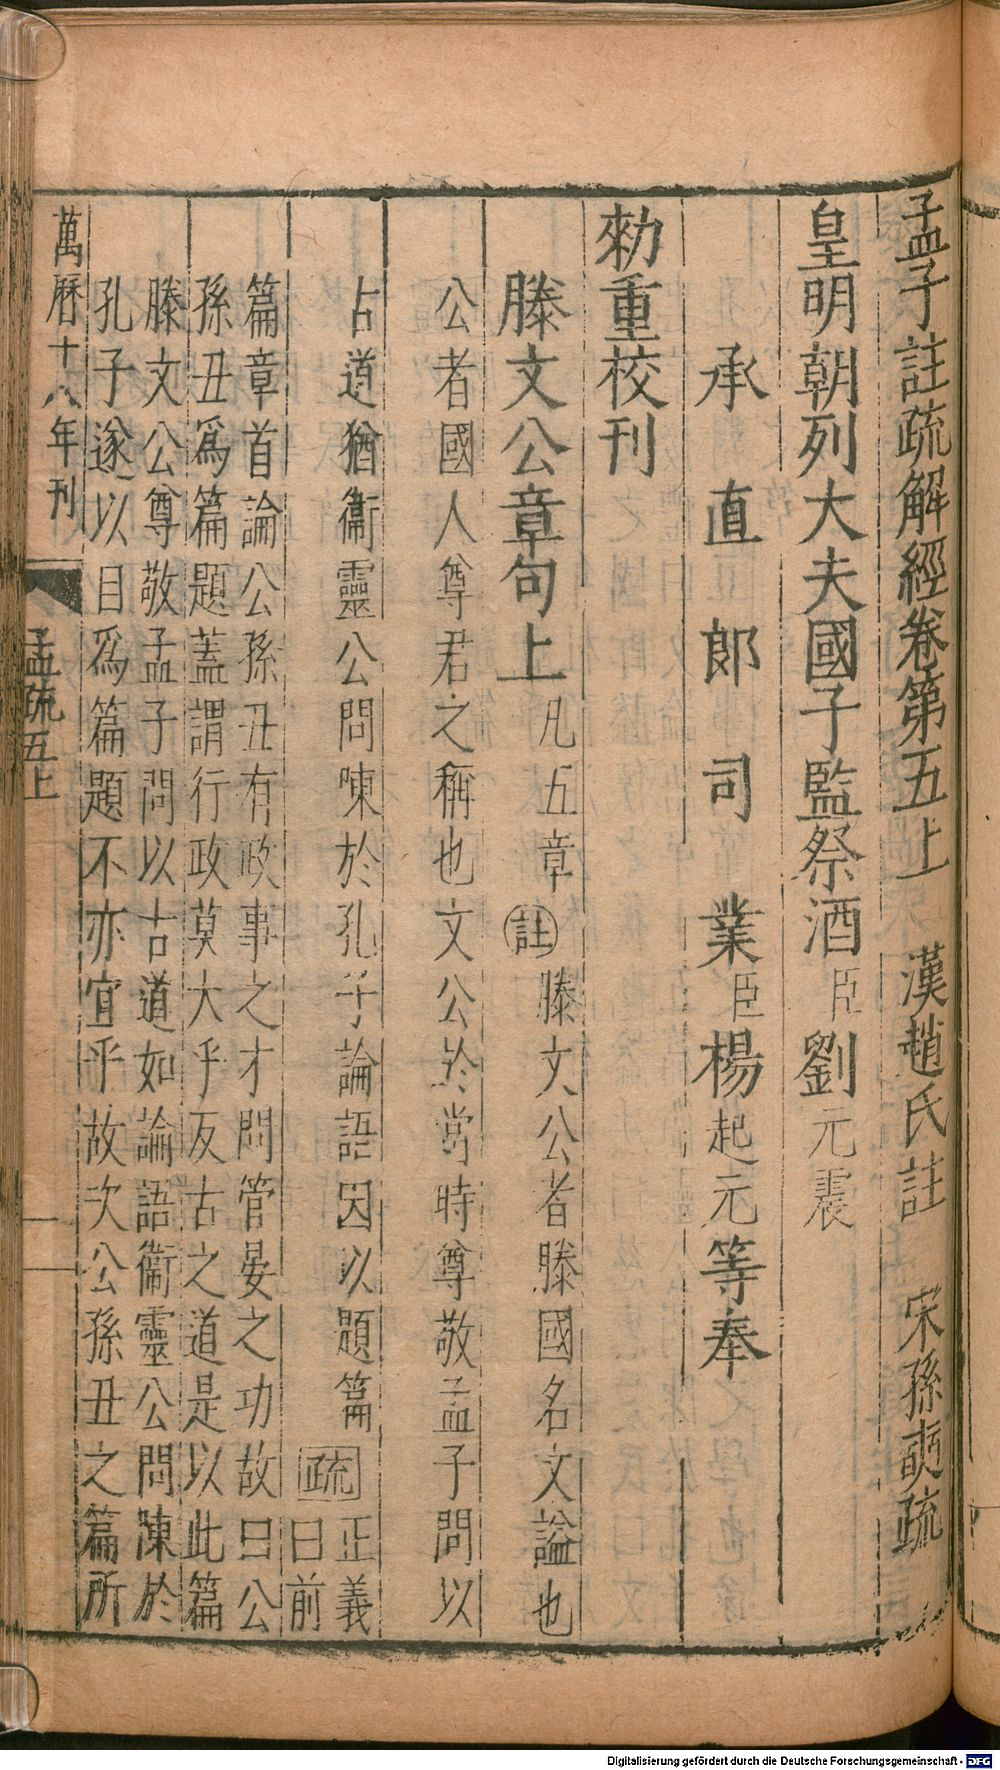 孟子註疏解經卷第五上 漢趙氏註 宋孫奭疏
皇明朝列大夫國子監祭酒臣劉元震
承直郎司業臣楊起元等奉
勑重校刊
滕文公章句上凡五章註滕文公者滕國名文謚也
公者國人尊君之稱也文公於當時尊敬孟子問以
古道猶衞靈公問陳於孔子論語因以題篇疏正義
曰前
篇章首論公孫丑有政事之才問管晏之功故曰公
孫丑爲篇題蓋謂行政莫大乎反古之道是以此篇
滕文公尊敬孟子問以古道如論語衞靈公問陳於
孔子遂以目爲篇題不亦宜乎故次公孫丑之篇所
萬曆十八年刊 孟疏五上 一
Digitalisierung gefördert durch die Deutsche Forschungsgemeinschaft - DFG